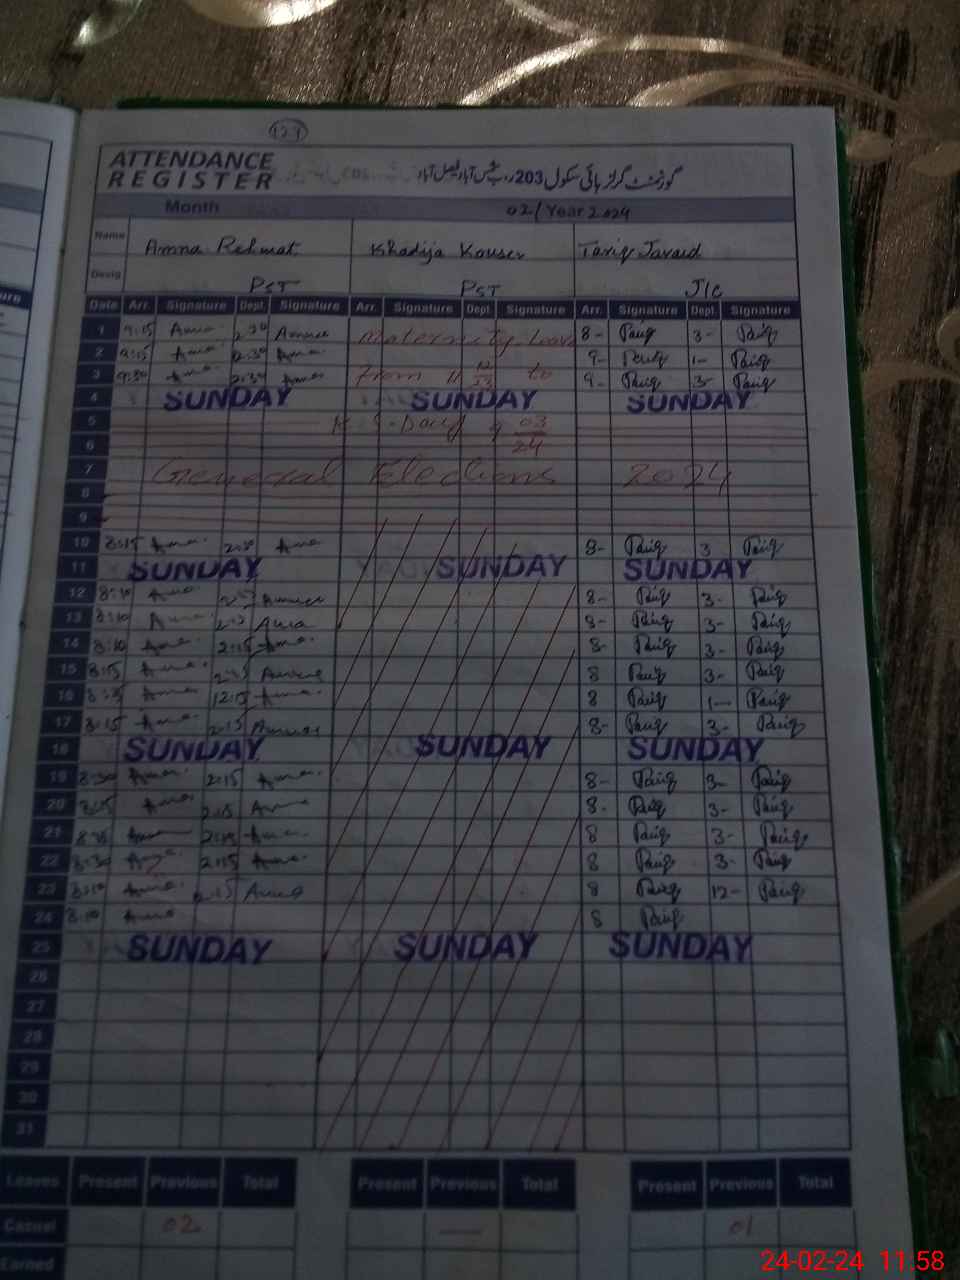 127
ATTENDANCE
REGISTER
گورنمنٹ گرلز ہائی سکول 203ر۔ب فیصل آباد
Month 02/Year 2024
Name Amna Rehmat Khadija Kouser Tariq Javaid
Desig PST PST J/C
Date Arr. Signature Dept. Signature Arr. Signature Dept Signature Arr. Signature Dept Signature
1 9:15 Amna Maternity Leave 8- Tariq 3- Tariq
2 9:15 2:30 9- Tariq 1- Tariq
3 9:30 2:30 From 11 12/23 to 9- Tariq 3- Tariq
4 SUNDAY SUNDAY SUNDAY
5 K.S-Day 9 03/24
6
7 General Elections 2024
8
9
10 8:15 Ama 2:30 Ama 8- Tariq 3 Tariq
11 SUNDAY SUNDAY SUNDAY
12 8:10 Ama 8- Tariq 3- Tariq
13 8:10 8- Tariq 3- Tariq
14 8:10 Ama 2:15 Ama 8- Tariq 3- Tariq
15 8:15 Ama 8 Tariq 3- Tariq
16 8:35 Ama 12:15 Ama 8 Tariq 1- Tariq
17 8:15 Ama 2:15 8- Tariq 3- Tariq
18 SUNDAY SUNDAY SUNDAY
19 8:30 Ama 2:15 Ama 8- Tariq 3- Tariq
20 8:15 Ama 2:15 8- Tariq 3- Tariq
21 2:15 Ama 8 Tariq 3- Tariq
22 8:30 2:15 Ama 8 Tariq 3- Tariq
23 8:10 Ama 2:15 Ama 8 Tariq 12- Tariq
24 8:10 Ama 8 Tariq
25 SUNDAY SUNDAY SUNDAY
26
27
28
29
30
31
Leaves Present Previous Total Present Previous Total Present Previous Total
Casual 02 — 01
Earned
24-02-24 11.58